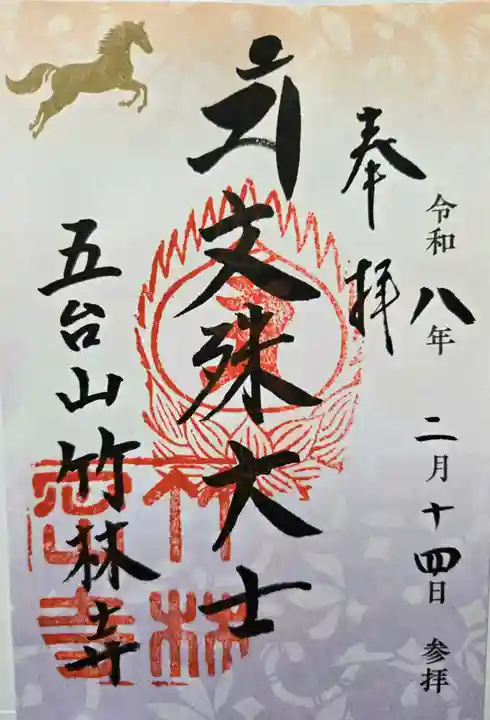 奉拝
令和八年 二月十四日 参拝
文殊大士
五台山 竹林寺
竹林
寺